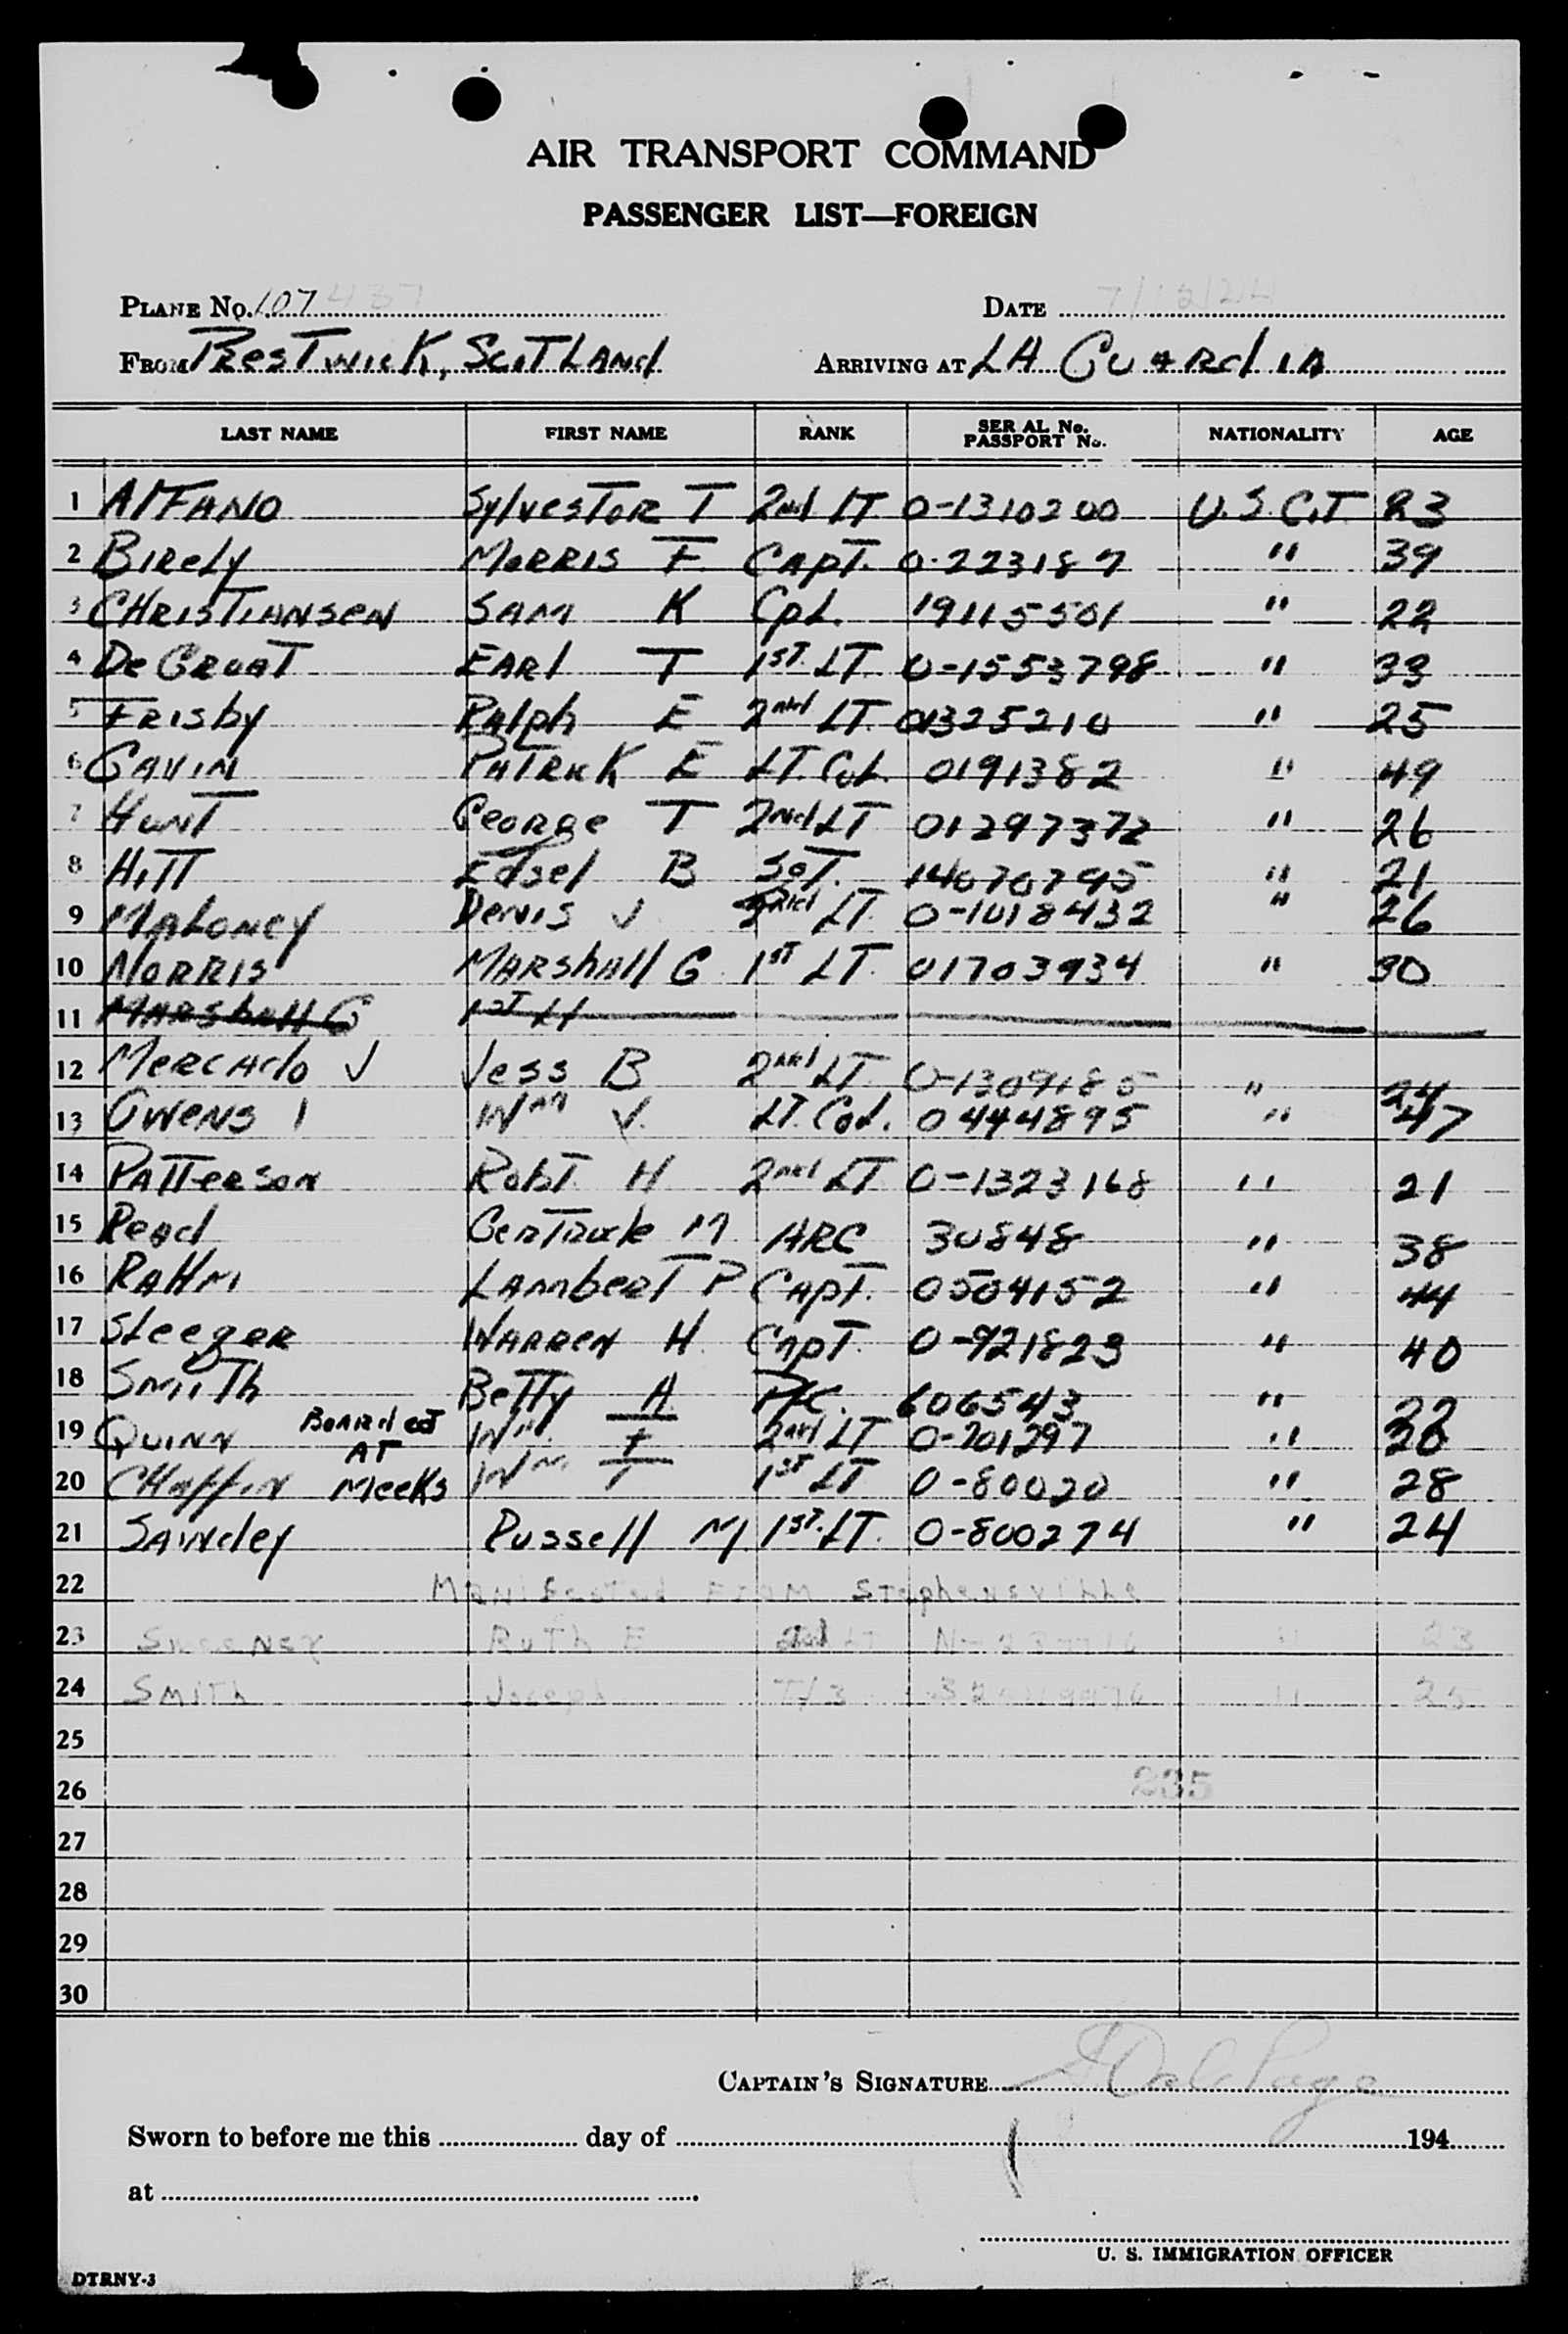 AIR TRANSPORT COMMAND
PASSENGER LIST—FOREIGN
PLANE NO. 107437 DATE 7/12/44
FROM PRESTWICK, SCOTLAND ARRIVING AT LA GUARDIA
LAST NAME FIRST NAME RANK SERIAL No. PASSPORT No. NATIONALITY AGE
1 ALFANO SYLVESTOR T 2nd LT 0-1310200 U.S.CIT. 23
2 BIRELY MORRIS F CAPT. 0-223187 " 39
3 CHRISTIANSEN SAM K Cpl. 19115501 " 22
4 De GROAT EARL T 1ST. LT. 0-1553798 " 33
5 FRISBY RALPH E 2nd LT. 01325210 " 25
6 GAVIN PATRICK E LT. COL. 0191382 " 49
7 HUNT GEORGE T 2nd LT 01297372 " 26
8 HITT EDSEL B SGT. 14070795 " 21
9 MALONEY DENIS J 2nd LT. 0-1018432 " 26
10 NORRIS MARSHALL G 1ST LT. 01703934 " 30
11 MARSHALL G 1ST Lt
12 MERCADO J JESS B 2nd LT 0-1309185 " 24
13 OWENS Wm V. LT. COL. 0444895 " 47
14 PATTERSON ROBT H 2nd LT 0-1323168 " 21
15 READ GERTRUDE M ARC 30848 " 38
16 RAHM LAMBERT P CAPT. 0504152 " 44
17 STEEGER WARREN H. CAPT. 0-921823 " 40
18 SMITH BETTY A Pfc. 606543 " 22
19 QUINN BOARDED AT Wm. F 2nd LT 0-701297 "
20 CHAFFIN MEEKS Wm. T 1ST LT 0-80020 " 28
21 SAWDEY RUSSELL M. 1ST. LT. 0-800274 " 24
22 MANIFESTED FROM Stephenville
23 SWEENEY RUTH E 2nd LT " 23
24 SMITH Joseph T/3 " 25
25
26 235
27
28
29
30
CAPTAIN'S SIGNATURE Dale Page
Sworn to before me this day of 194
at
U. S. IMMIGRATION OFFICER
DTRNY-3